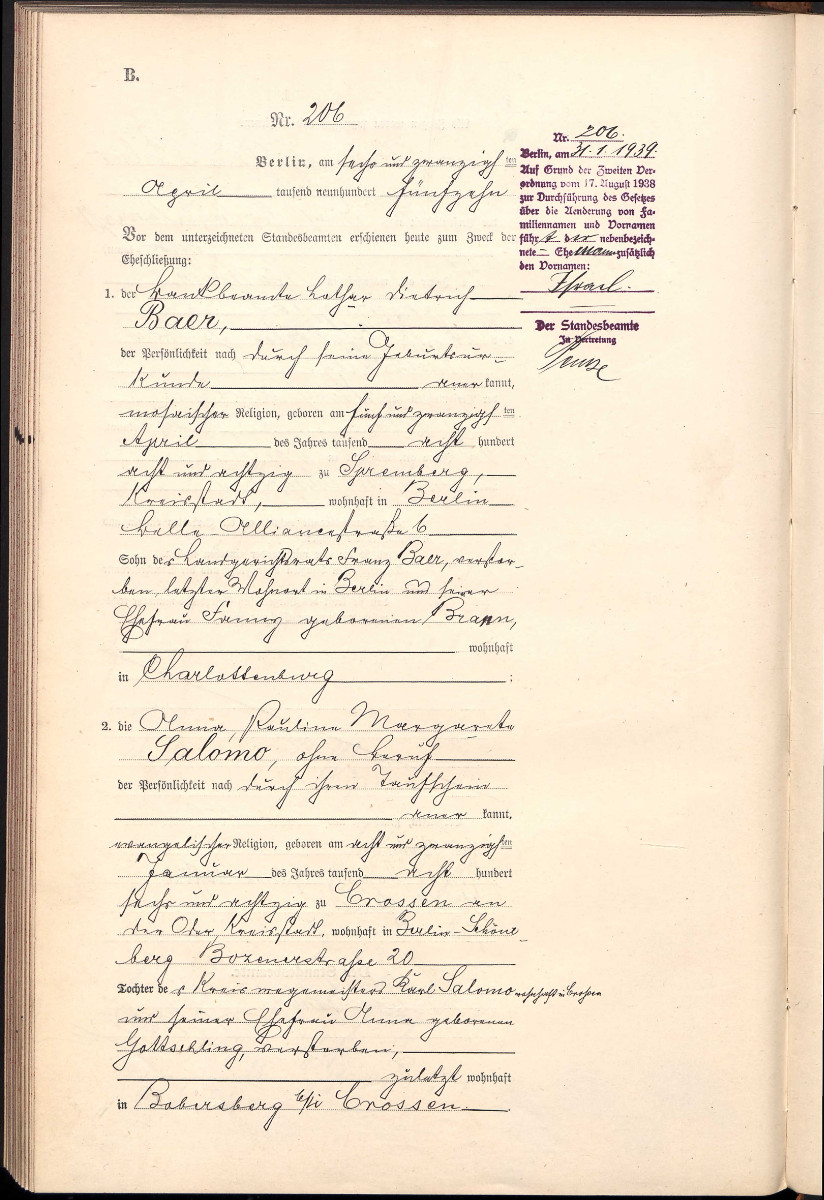 B.
Nr. 206
Berlin, am sechs und zwanzigsten
April tausend neunhundert fünfzehn
Vor dem unterzeichneten Standesbeamten erschienen heute zum Zweck der
Eheschließung:
1. der Bankbeamte Lothar Dietrich
Baer,
der Persönlichkeit nach durch seine Geburtsur-
kunde aner kannt,
mosaischer Religion, geboren am fünf und zwanzigsten
April des Jahres tausend acht hundert
acht und achtzig zu Spremberg,
Kreisstadt, wohnhaft in Berlin
Belle Alliancestraße 6
Sohn des Landgerichtsrats Franz Baer, verstor-
ben, letzter Wohnort in Berlin und seiner
Ehefrau Fanny geborenen Brann,
wohnhaft
in Charlottenburg ;
2. die Anna Pauline Margarete
Salomo, ohne Beruf
der Persönlichkeit nach durch ihren Taufschein
aner kannt,
evangelischer Religion, geboren am acht und zwanzigsten
Januar des Jahres tausend acht hundert
sechs und achtzig zu Crossen an
der Oder Kreisstadt, wohnhaft in Berlin-Schöne
berg Bozenerstraße 20
Tochter des Kreiswegemeisters Karl Salomo wohnhaft in Crossen
und seiner Ehefrau Anna geborenen
Gottschling, verstorben,
zuletzt wohnhaft
in Bobersberg bei Crossen
Nr. 206.
Berlin, am 31.1.1939.
Auf Grund der Zweiten Ver-
ordnung vom 17. August 1938
zur Durchführung des Gesetzes
über die Aenderung von Fa-
miliennamen und Vornamen
führt der nebenbezeich-
nete Ehemann zusätzlich
den Vornamen:
Israel.
Der Standesbeamte
In Vertretung